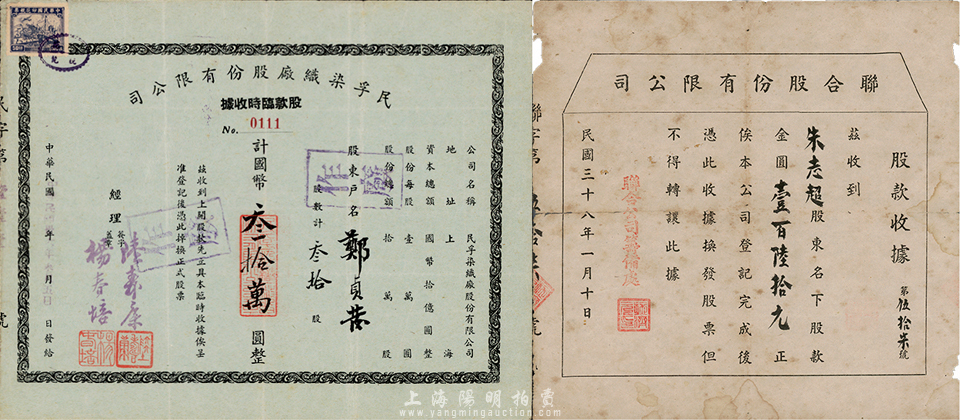 中華民國印花稅票
民孚染織廠股份有限公司
股款臨時收據
No. 0111
公司名稱 民孚染織廠股份有限公司
地址 上海
資本總額 國幣拾億圓整
股份每股 壹萬圓
股份總額 拾萬股
股東戶名 鄭貞棠
股數計 叁拾 股
計國幣 叁拾萬 圓整
茲收到上開股款先立具本臨時收據俟呈
准登記後憑此掉換正式股票
經理
楊春培
中華民國 年 月 日發給
作廢
民字第 號
聯合股份有限公司
股款收據
第伍拾柒號
茲收到
朱志超 股東名下股款
金圓 壹百陸拾元 正
俟本公司登記完成後
憑此收據換發股票但
不得轉讓此據
民國三十八年一月十日
聯字第 號
上海陽明拍賣
www.yangmingauction.com